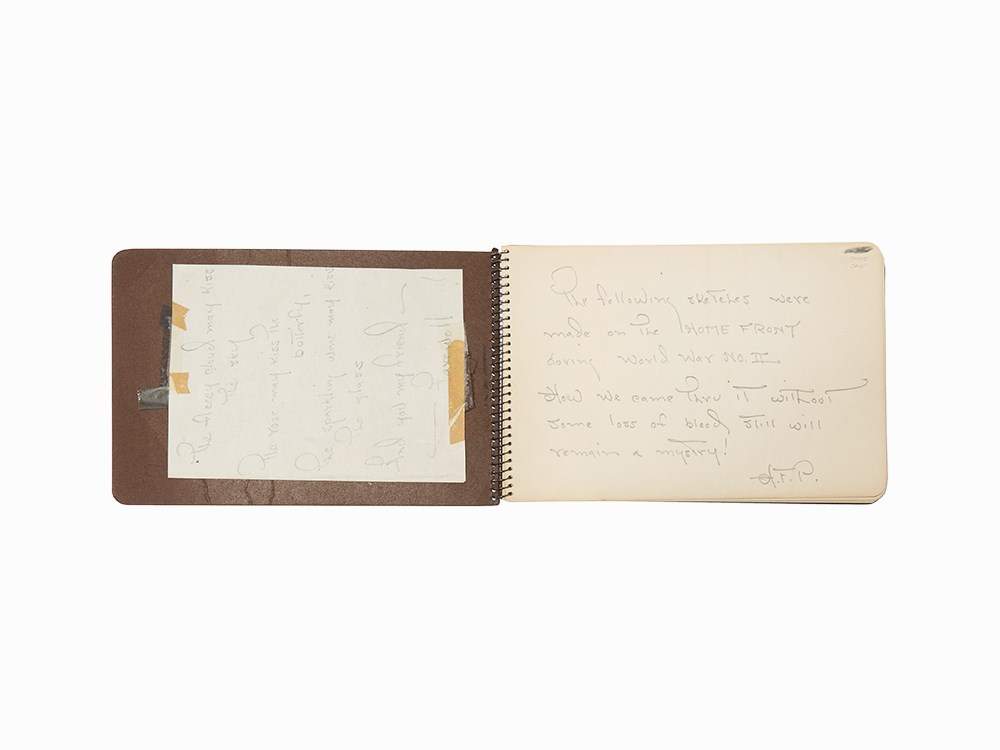 The fleecy cloud may kiss
the sky
The rose may kiss the
butterfly,
The sparkling wine may kiss
The glass
And you my friend
Farewell!
The following sketches were
made on the HOME FRONT
during World War NO. II.
How we came thru it without
some loss of blood still will
remain a mystry!
H.T.P.